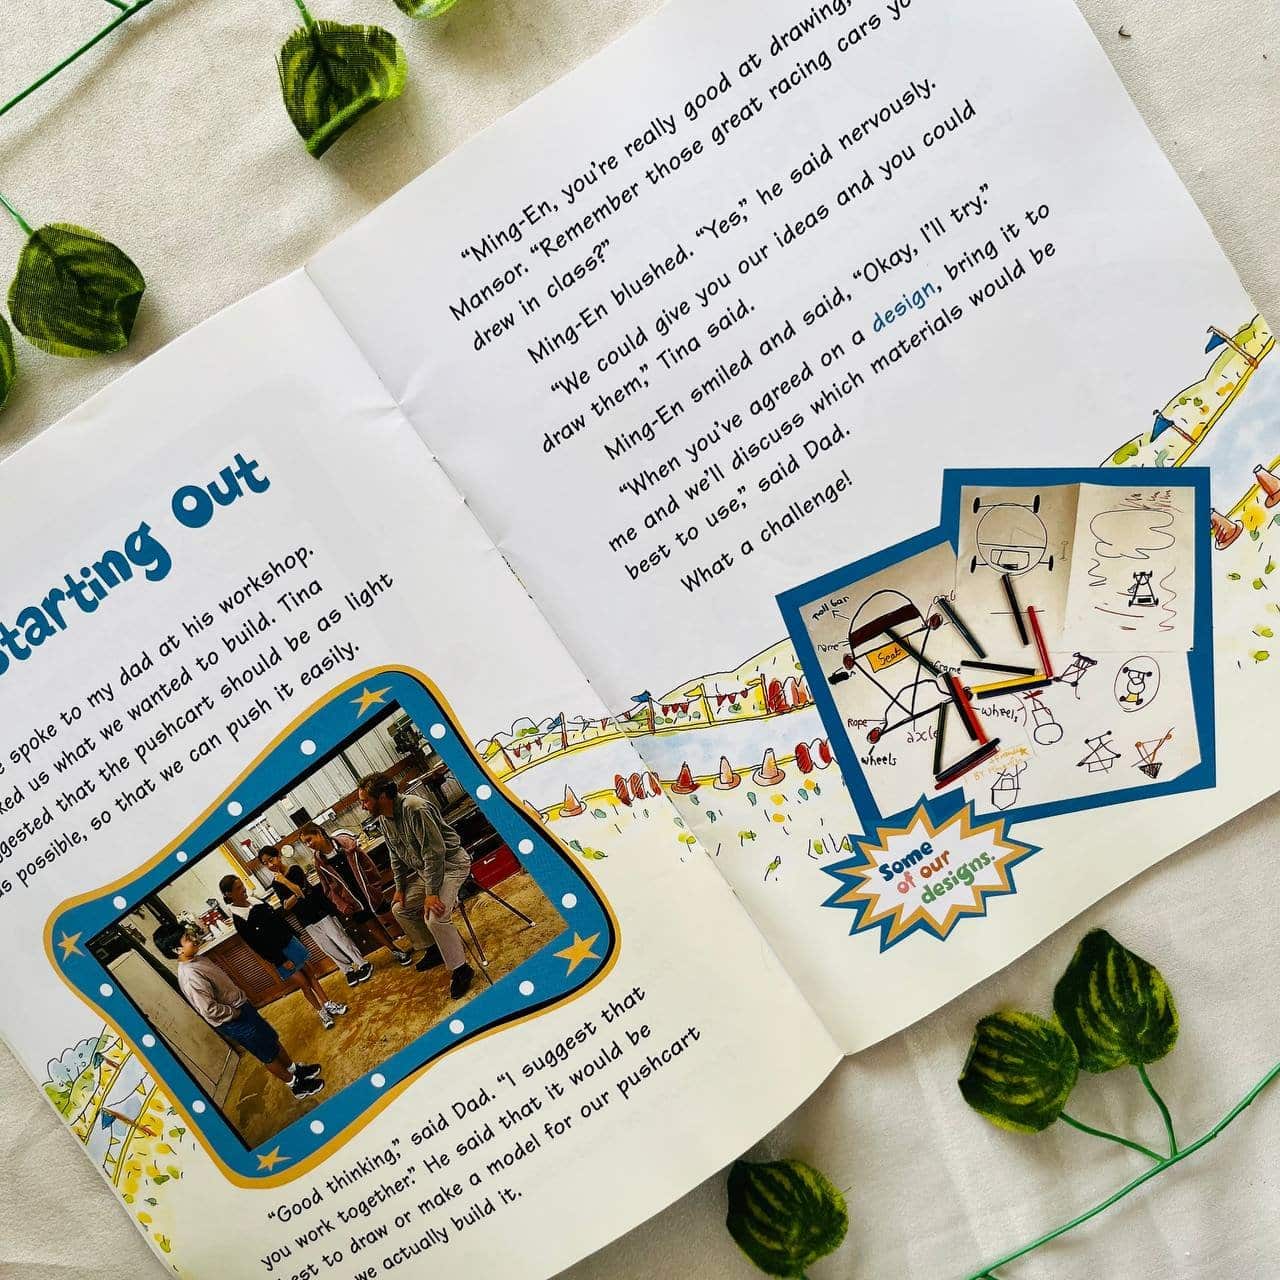 Starting Out
spoke to my dad at his workshop.
us what we wanted to build. Tina
that the pushcart should be as light
as possible, so that we can push it easily.
"Good thinking," said Dad. "I suggest that
you work together." He said that it would be
to draw or make a model for our pushcart
we actually build it.
"Ming-En, you're really good at drawing,
Mansor. "Remember those great racing cars
drew in class?"
Ming-En blushed. "Yes," he said nervously.
"We could give you our ideas and you could
draw them," Tina said.
Ming-En smiled and said, "Okay, I'll try."
"When you've agreed on a design, bring it to
me and we'll discuss which materials would be
best to use," said Dad.
What a challenge!
roll bar
Seat
frame
Rope
wheels
axle
wheels
Some
of our
designs.